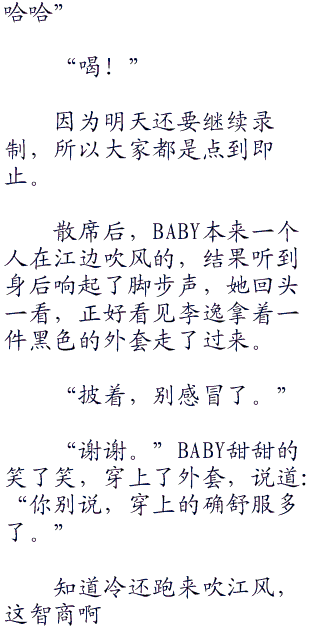 哈哈”
“喝！”
因为明天还要继续录
制，所以大家都是点到即
止。
散席后，BABY本来一个
人在江边吹风的，结果听到
身后响起了脚步声，她回头
一看，正好看见李逸拿着一
件黑色的外套走了过来。
“披着，别感冒了。”
“谢谢。”BABY甜甜的
笑了笑，穿上了外套，说道：
“你别说，穿上的确舒服多
了。”
知道冷还跑来吹江风，
这智商啊